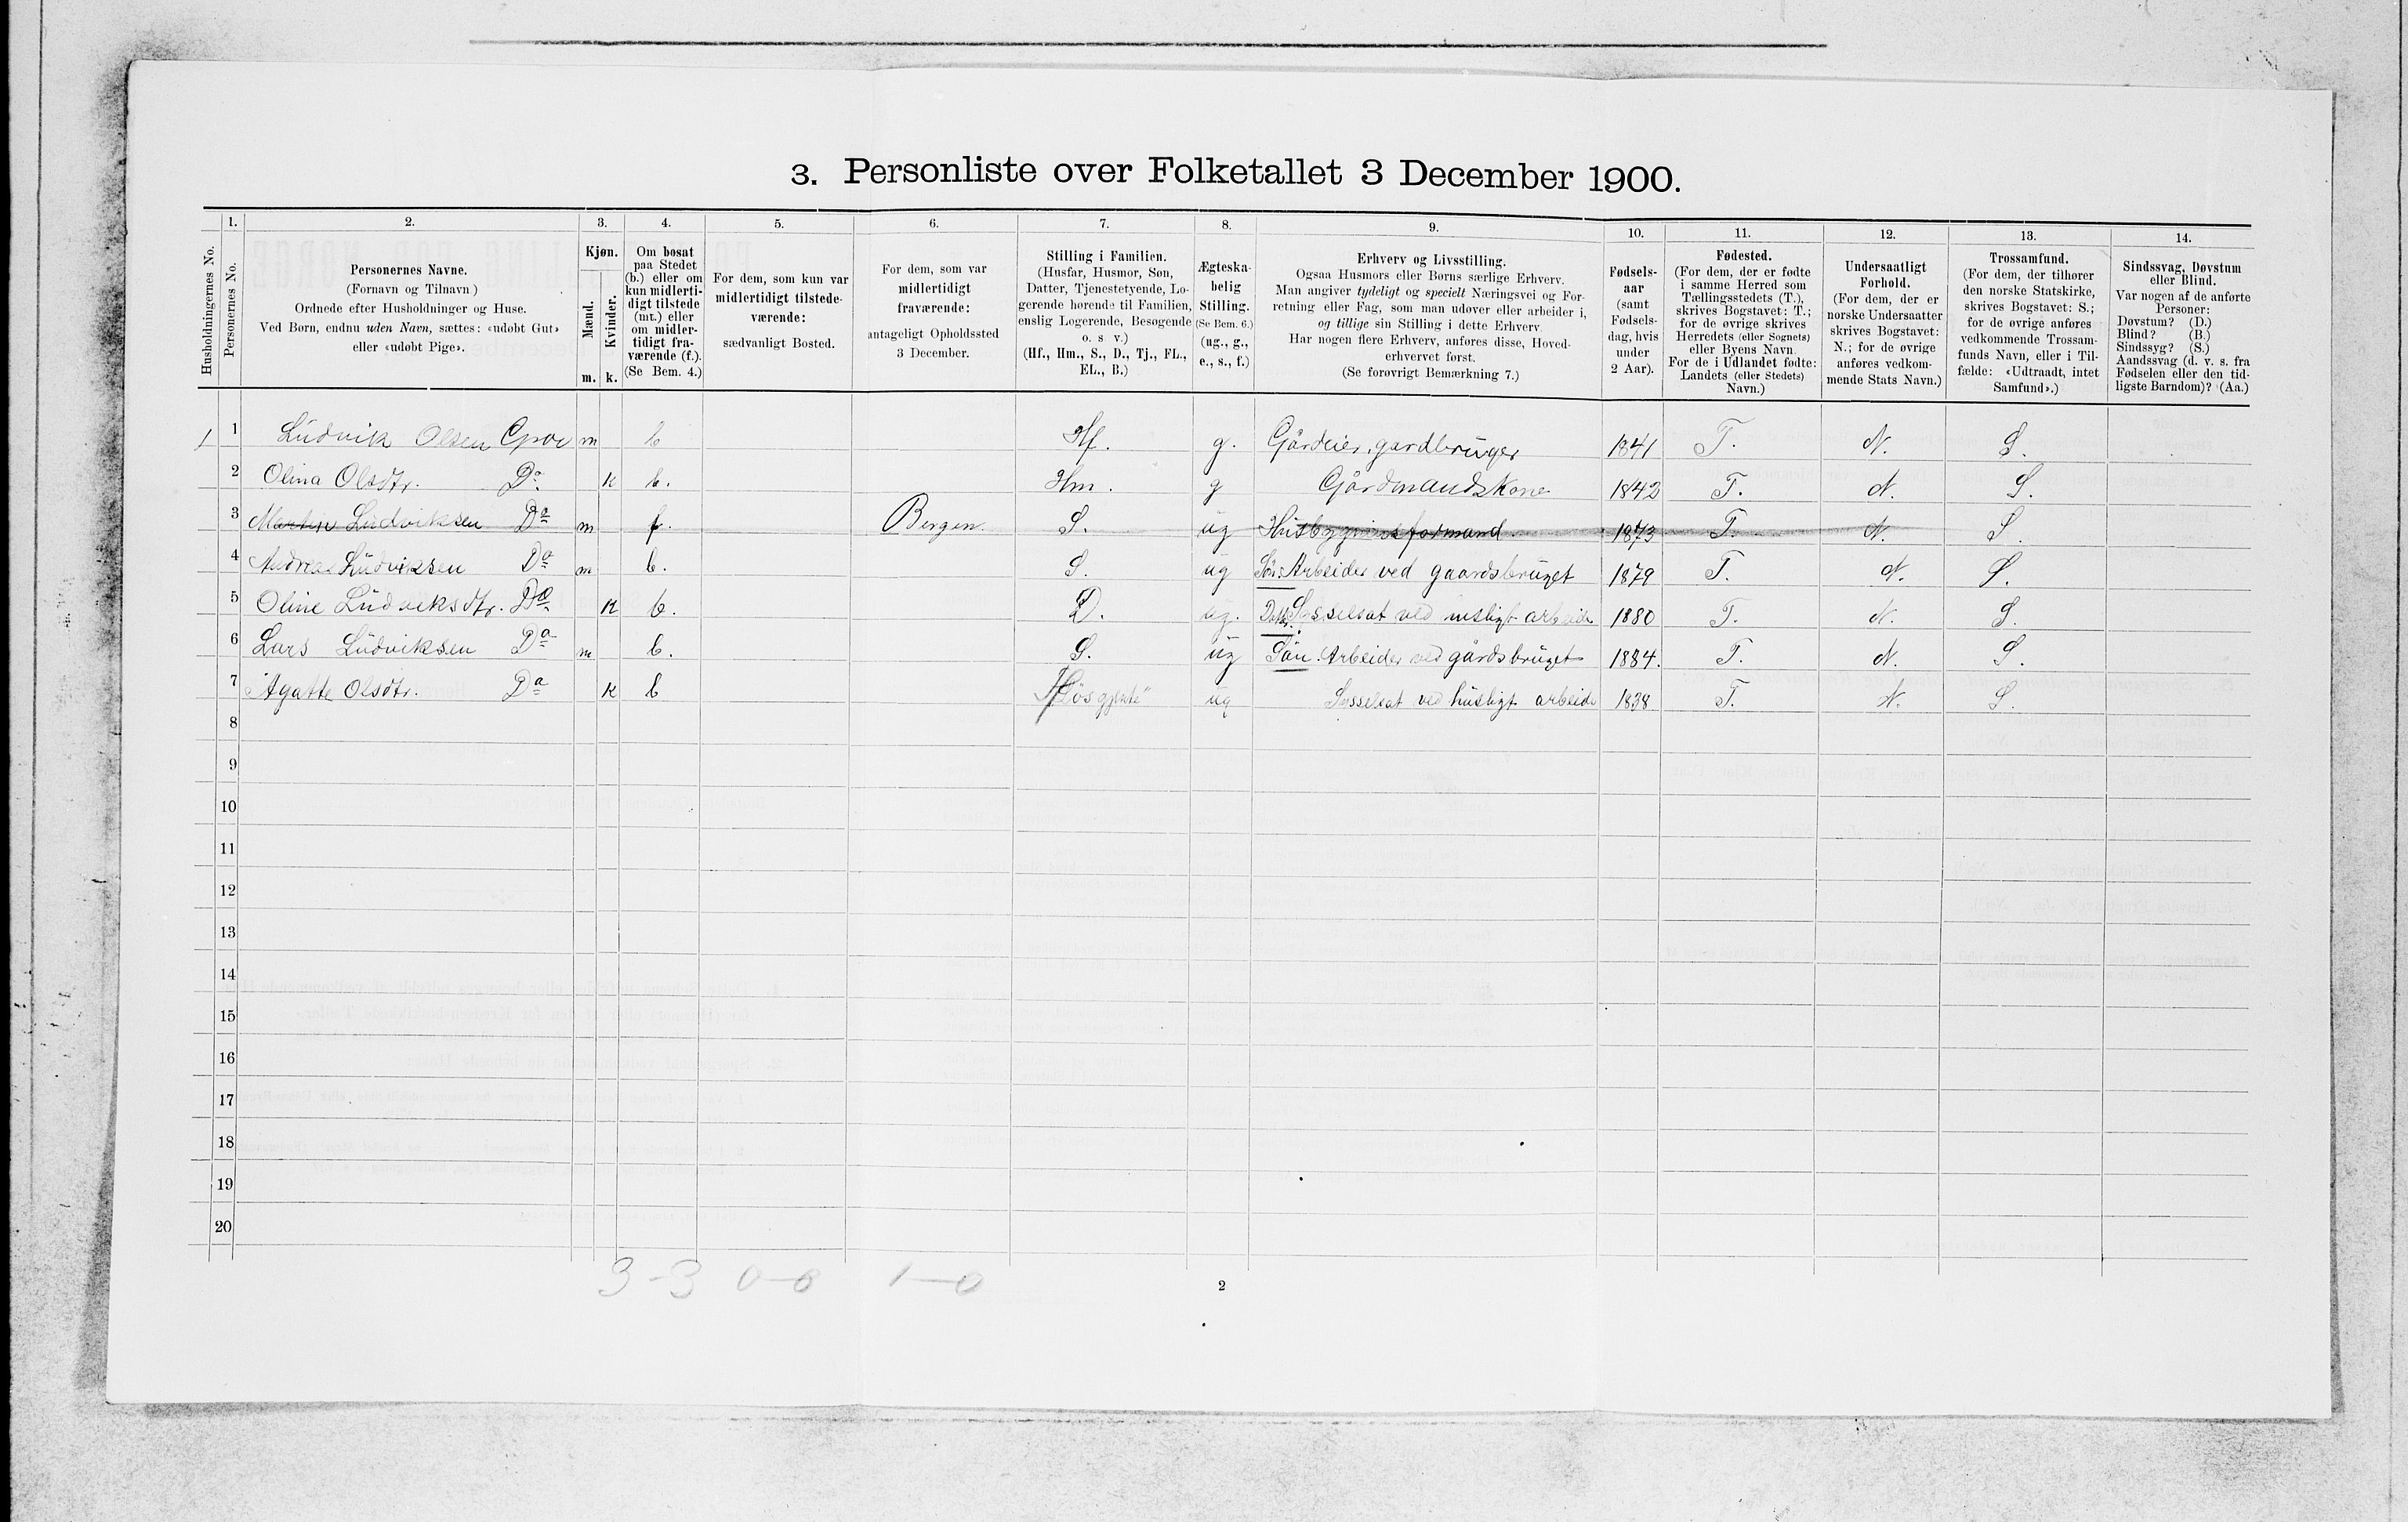 3. Personliste over Folketallet 3 December 1900.
1. 2. 3. 4. 5. 6. 7. 8. 9. 10. 11. 12. 13. 14.
Husholdningernes No.
Personernes No.
Personernes Navne.
(Fornavn og Tilnavn)
Ordnede efter Husholdninger og Huse.
Ved Børn, endnu uden Navn, sættes: «udøbt Gut»
eller «udøbt Pige».
Kjøn.
Mænd.
Kvinder.
m. k.
Om bosat
paa Stedet
(b.) eller om
kun midlerti-
digt tilstede
(mt.) eller
om midler-
tidigt fra-
værende (f.).
(Se Bem. 4.)
For dem, som kun var
midlertidigt tilstede-
værende:
sædvanligt Bosted.
For dem, som var
midlertidigt
fraværende:
antageligt Opholdssted
3 December.
Stilling i Familien.
(Husfar, Husmor, Søn,
Datter, Tjenestetyende, Lo-
gerende hørende til Familien,
enslig Logerende, Besøgende
o. s. v.)
(Hf., Hm., S., D., Tj., FL.,
EL., B.)
Ægteska-
belig
Stilling.
(Se Bem. 6.)
(ug., g.,
e., s., f.)
Erhverv og Livsstilling.
Ogsaa Husmors eller Børns særlige Erhverv.
Man angiver tydeligt og specielt Næringsvei og For-
retning eller Fag, som man udøver eller arbeider i,
og tillige sin Stilling i dette Erhverv.
Har nogen flere Erhverv, anføres disse, Hoved-
erhvervet først.
(Se forøvrigt Bemærkning 7.)
Fødsels-
aar
(samt
Fødsels-
dag, hvis
under
2 Aar).
Fødested.
(For dem, der er fødte
i samme Herred som
Tællingsstedets (T.),
skrives Bogstavet: T.;
for de øvrige skrives
Herredets (eller Sognets)
eller Byens Navn.
For de i Udlandet fødte:
Landets (eller Stedets)
Navn.)
Undersaatligt
Forhold.
(For dem, der er
norske Undersaatter
skrives Bogstavet:
N.; for de øvrige
anføres vedkom-
mende Stats Navn.)
Trossamfund.
(For dem, der tilhører
den norske Statskirke,
skrives Bogstavet: S.;
for de øvrige anføres
vedkommende Trossam-
funds Navn, eller i Til-
fælde: «Udtraadt, intet
Samfund».)
Sindssvag, Døvstum
eller Blind.
Var nogen af de anførte
Personer:
Døvstum? (D.)
Blind? (B.)
Sindssyg? (S.)
Aandssvag (d. v. s. fra
Fødselen eller den tid-
ligste Barndom)? (Aa.)
1 1 Ludvik Olsen m b Hf. g. Gårdeier, gardbruger 1841 T. N. S.
2 Olina Olsdtr. Do. k b. Hm. g Gårdmandskone 1842 T. N. S.
3 Martin Ludviksen Do m f. Bergen. S. ug 1873 T. N. S.
4 Andreas Ludviksen Do m b. S. ug Søn. Arbeider ved gaardsbruget 1879 T. N. S.
5 Oline Ludviksdtr. Do k b. D. ug. Datter. Sysselsat ved husligt arbeide 1880 T. N. S.
6 Lars Ludviksen Do m b. S. ug Søn. Arbeider ved gårdsbruget 1884. T. N. S.
7 Agatte Olsdtr. Do k b ug Sysselsat ved husligt arbeide 1838 T. N. S.
8
9
10
11
12
13
14
15
16
17
18
19
20
3-3 0-0 1-0
2